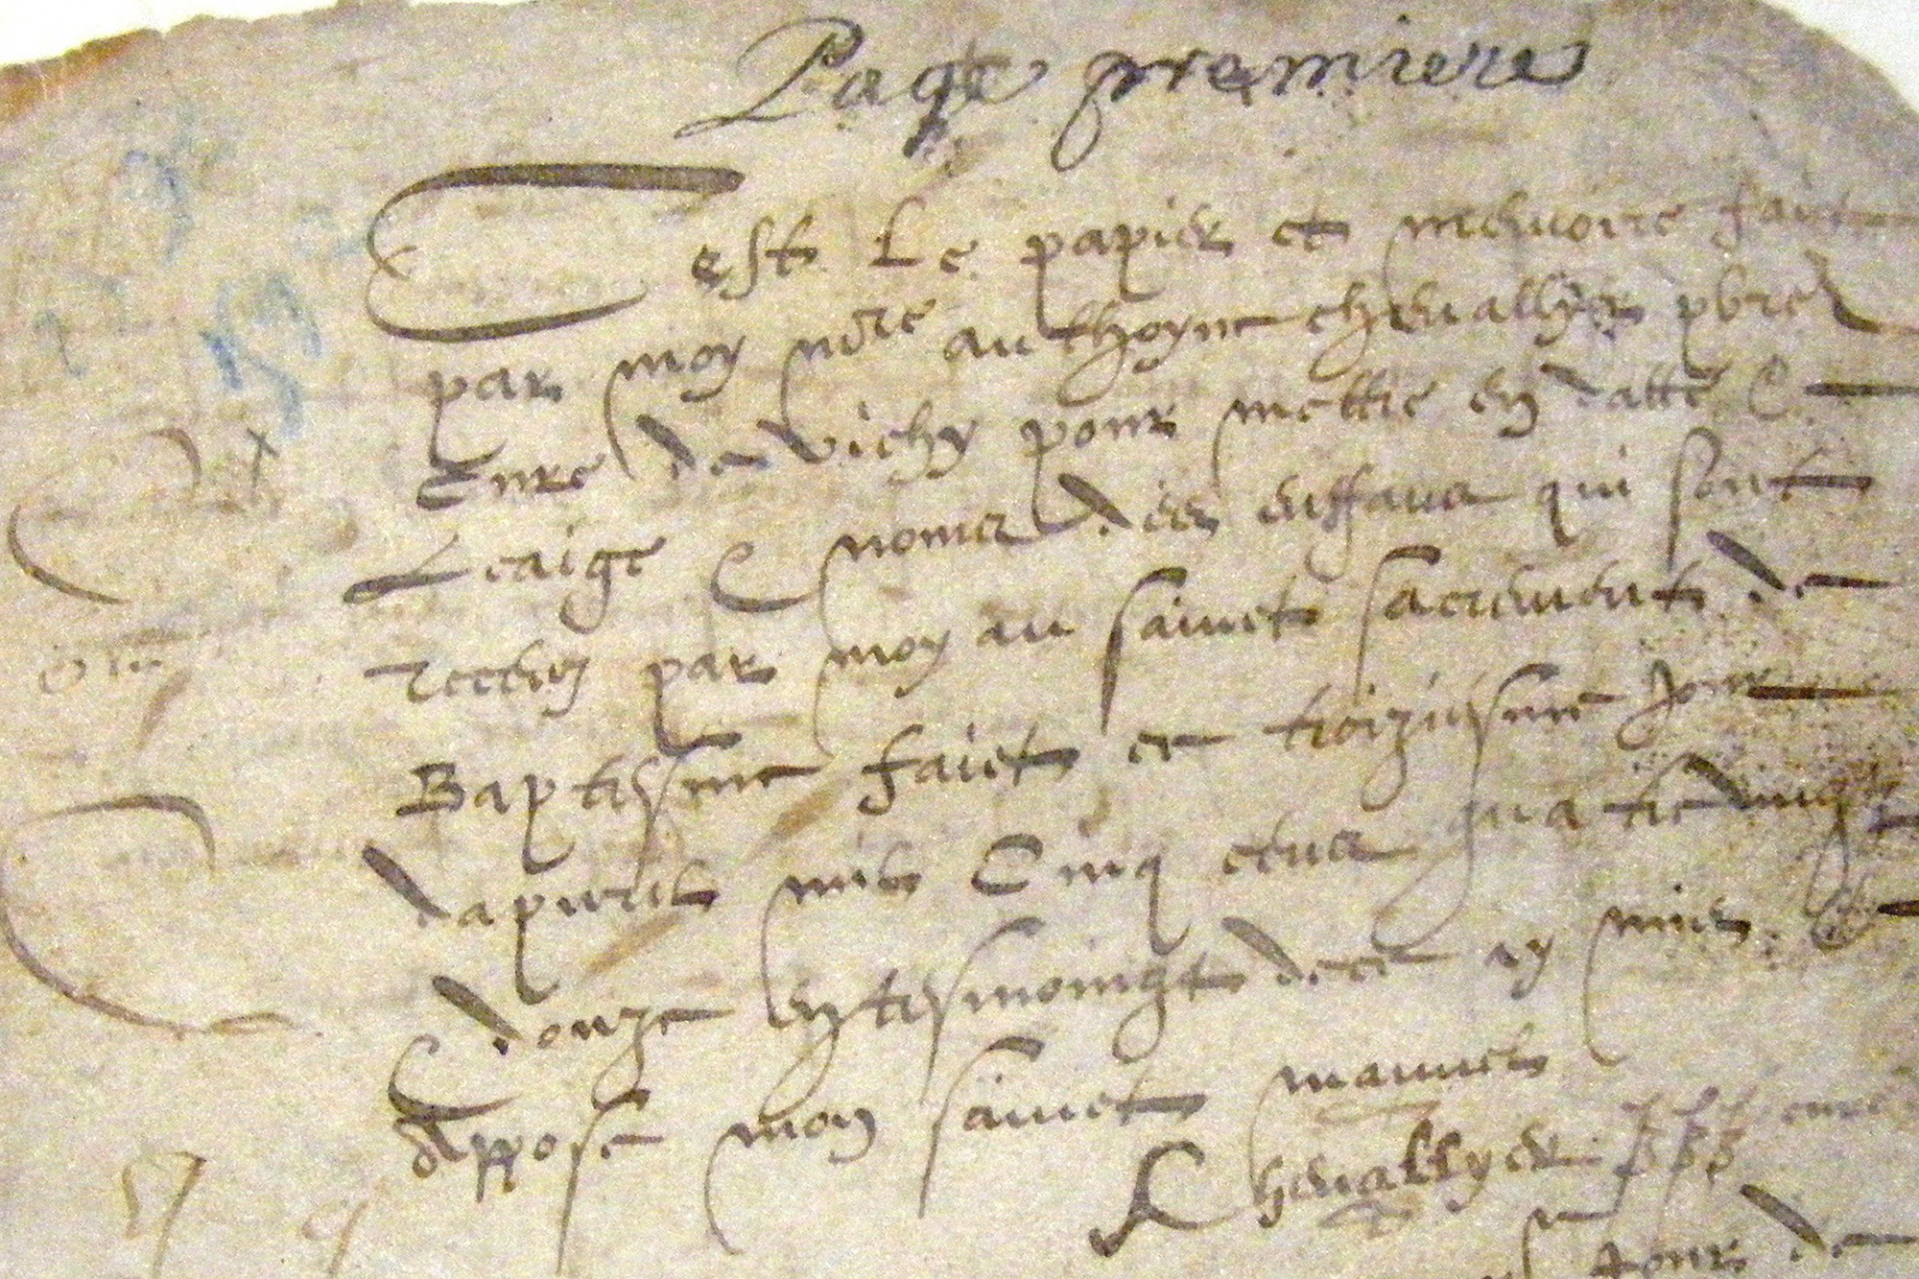 Page premiere
Cest Le papier et memoire faict
par moy mre anthoyne chevallyer pbre
Cure de vichy pour mettre en datte &
Leaige & noms des enffans qui sont
receuz par moy au sainct sacrement de
Baptesme faict ce troiziesme jour
dapvril mil Cinq cens quatre vingt
& douze en tesmoingt de ce ay mis &
Appose mon sainct manuel
Chevallyer cure
jour de